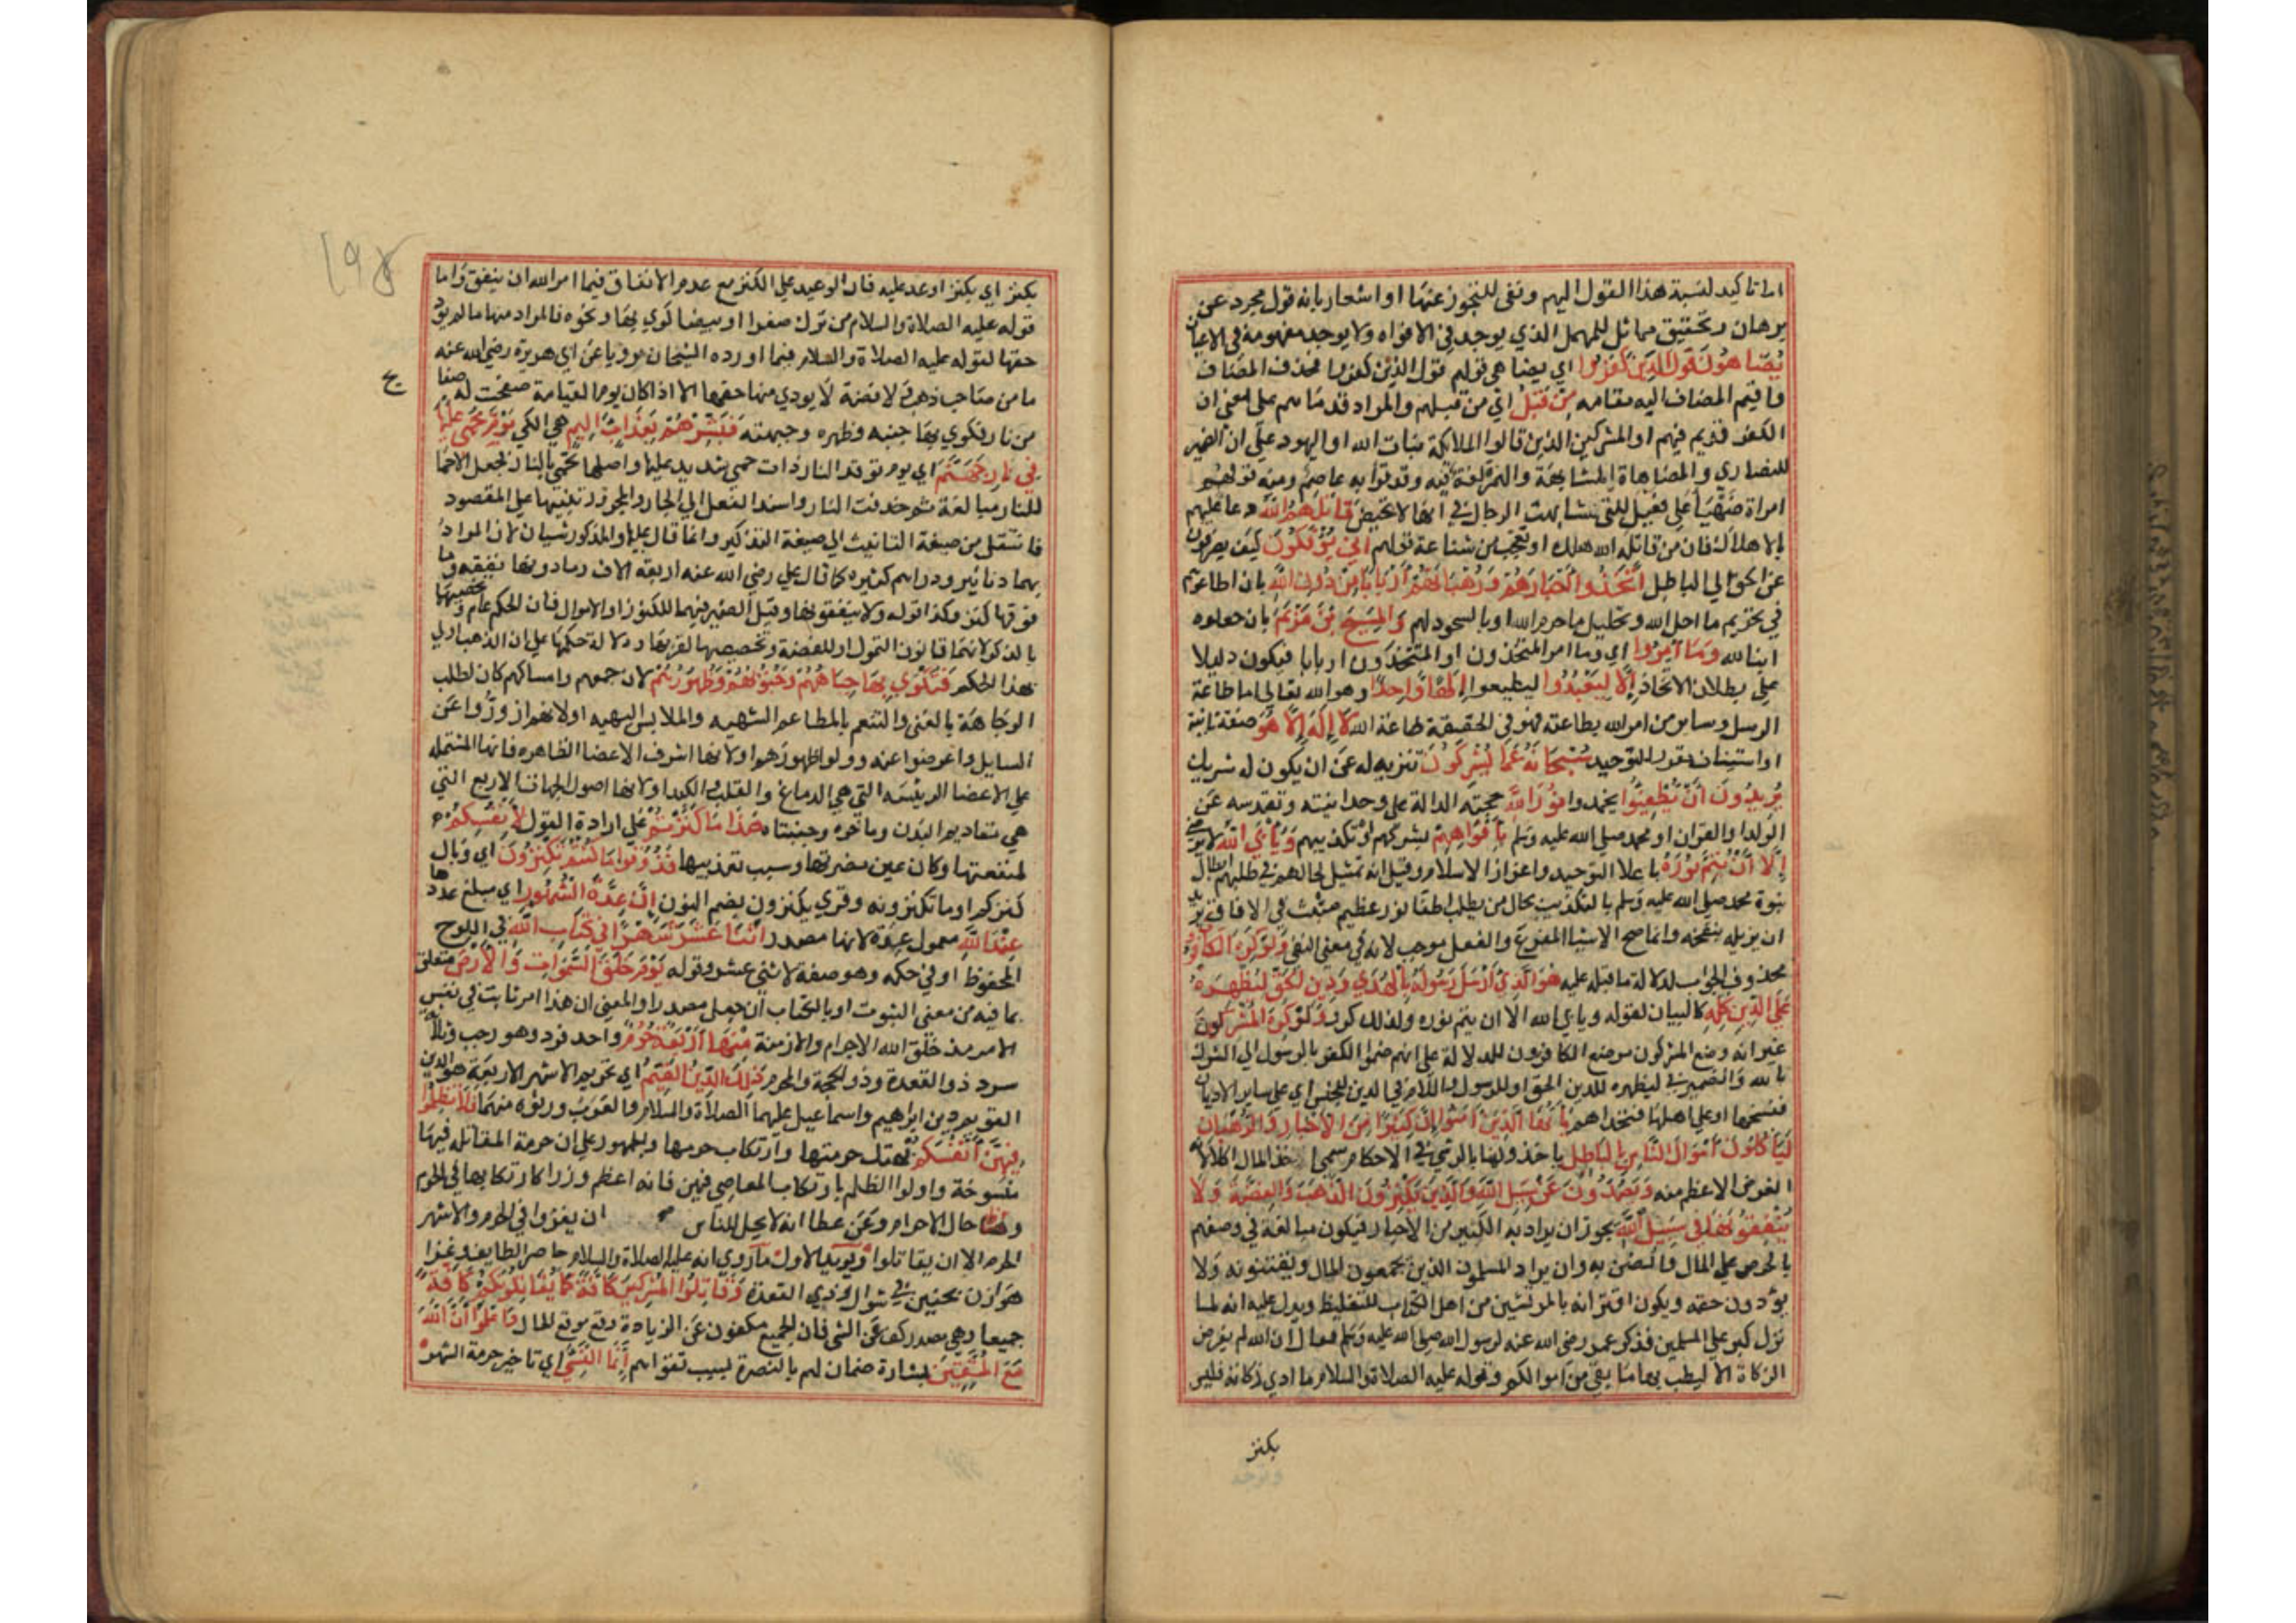 اما تاكيد لنسبة هذا القول اليهم ونفى للتجوز عنها او اشعار بانه قول مجرد عن
برهان وتحقيق مماثل للمهمل الذي يوجد في الافواه ولا يوجد مفهومه في الاعيان
يُضَاهُونَ قَوْلَ الَّذِينَ كَفَرُوا اي يضاهي قولهم قول الذين كفروا فحذف المضاف
واقيم المضاف اليه مقامه مِنْ قَبْلُ اي من قبلهم والمراد قدماؤهم على معنى ان
الكفر قديم فيهم او المشركين الذين قالوا الملائكة بنات الله او اليهود على ان الضمير
للنصاري والمضاهاة المشابهة والهمزة لغة فيه وقد قرأ به عاصم ومنه قولهم
امراة ضَهْيَأ على فعيل للتي شابهت الرجال في انها لا تحيض قَاتَلَهُمُ اللَّهُ دعا عليهم
بالاهلاك فان من قاتله الله هلك او تعجب من شناعة قولهم أَنَّى يُؤْفَكُونَ كيف يصرفون
عن الحق الي الباطل اتَّخَذُوا أَحْبَارَهُمْ وَرُهْبَانَهُمْ أَرْبَابًا مِنْ دُونِ اللَّهِ بان اطاعوهم
في تحريم ما احل الله وتحليل ما حرم الله او بالسجود لهم وَالْمَسِيحَ بْنَ مَرْيَمَ بان جعلوه
ابنا لله وَمَا أُمِرُوا اي وما امر المتخذون او المتخذون اربابا فيكون دليلا
على بطلان الاتخاذ إِلَّا لِيَعْبُدُوا ليطيعوا إِلَهًا وَاحِدًا وهو الله تعالي اما طاعة
الرسل وساير من امر الله بطاعته فهو في الحقيقة طاعة الله لَا إِلَهَ إِلَّا هُوَ صفة ثانية
او استيناف مقرر للتوحيد سُبْحَانَهُ عَمَّا يُشْرِكُونَ تنزيه له عن ان يكون له شريك
يُرِيدُونَ أَنْ يُطْفِئُوا يخمدوا نُورَ اللَّهِ حجته الدالة على وحدانيته وتقدسه عن
الولد او القران او محمد صلي الله عليه وسلم بِأَفْوَاهِهِمْ بشركهم او تكذيبهم وَيَأْبَى اللَّهُ لا يرضي
إِلَّا أَنْ يُتِمَّ نُورَهُ باعلا التوحيد واعزاز الاسلام وقيل انه تمثيل لحالهم في طلبهم ابطال
نبوة محمد صلي الله عليه وسلم بالتكذيب بحال من يطلب اطفا نور عظيم منبث في الافاق يريد
ان يزيله بنفخه وانما صح الاستثنا المفرغ والفعل موجب لانه في معنى النفي وَلَوْ كَرِهَ الْكَافِرُونَ
محذوف الجواب لدلالة ما قبله عليه هُوَ الَّذِي أَرْسَلَ رَسُولَهُ بِالْهُدَى وَدِينِ الْحَقِّ لِيُظْهِرَهُ
عَلَى الدِّينِ كُلِّهِ كالبيان لقوله ويابي الله الا ان يتم نوره ولذلك كرر وَلَوْ كَرِهَ الْمُشْرِكُونَ
غير انه وضع المشركون موضع الكافرون للدلالة على انهم ضموا الكفر بالرسول الي الشرك
بالله والضمير في ليظهره للدين الحق او للرسول واللام في الدين للجنس اي على ساير الاديان
فينسخها او على اهلها فيخذلهم يَا أَيُّهَا الَّذِينَ آمَنُوا إِنَّ كَثِيرًا مِنَ الْأَحْبَارِ وَالرُّهْبَانِ
لَيَأْكُلُونَ أَمْوَالَ النَّاسِ بِالْبَاطِلِ ياخذونها بالرشي في الاحكام سمي اخذ المال اكلا لانه
الغرض الاعظم منه وَيَصُدُّونَ عَنْ سَبِيلِ اللَّهِ وَالَّذِينَ يَكْنِزُونَ الذَّهَبَ وَالْفِضَّةَ وَلَا
يُنْفِقُونَهَا فِي سَبِيلِ اللَّهِ يجوز ان يراد به الكثير من الاحبار فيكون مبالغة في وصفهم
بالحرص على المال والضن به وان يراد المسلمون الذين يجمعون المال ويقتنونه ولا
يؤدون حقه ويكون اقترانه بالمرتشين من اهل الكتاب للتغليظ ويدل عليه انه لما
نزل كبر على المسلمين فذكر عمر رضي الله عنه لرسول الله صلي الله عليه وسلم فقال ان الله لم يفرض
الزكاة الا ليطيب بها ما بقي من اموالكم وقوله عليه الصلاة والسلام ما ادي زكاته فليس
بكنز
١٩٤
بكنز اي بكنز اوعد عليه فان الوعيد على الكنز مع عدم الانفاق فيما امر الله ان ينفق واما
قوله عليه الصلاة والسلام من ترك صفرا او بيضا كوي بها ونحوه فالمراد منها ما لم يود
حقها لقوله عليه الصلاة والسلام فيما اورده الشيخان مرويا عن ابي هريرة رضي الله عنه
ما من صاحب ذهب ولا فضة لا يودي منها حقها الا اذا كان يوم القيامة صفحت له صفايح
من نار فيكوي بها جنبه وظهره وجبهته فَبَشِّرْهُمْ بِعَذَابٍ أَلِيمٍ هي الكي يَوْمَ يُحْمَى عَلَيْهَا
فِي نَارِ جَهَنَّمَ اي يوم توقد النار ذات حمي شديد عليها واصلها تحمي بالنار فجعل الاحما
للنار مبالغة ثم حذفت النار واسند الفعل الي الجار والمجرور تنبيها على المقصود
فانتقل من صيغة التانيث الي صيغة التذكير وانما قال عليها والمذكور شيان لان المراد
بهما دنانير ودراهم كثيره كما قال علي رضي الله عنه اربعة الاف وما دونها نفقه وما
فوقها كنز وكذا قوله ولا ينفقونها وقيل الضمير فيهما للكنوز او الاموال فان الحكم عام وتخصيصهما
بالذكر لانهما قانون التمول او للفضة وتخصيصها لقربها ودلالة حكمها على ان الذهب اولي
بهذا الحكم فَتُكْوَى بِهَا جِبَاهُهُمْ وَجُنُوبُهُمْ وَظُهُورُهُمْ لان جمعهم وامساكهم كان لطلب
الوجاهة بالغنى والتنعم بالمطاعم الشهيه والملابس البهيه او لانهم ازوروا عن
السايل واعرضوا عنه وولوا ظهورهم او لانها اشرف الاعضا الظاهره فانها المشتمله
على الاعضا الرئيسة التي هي الدماغ والقلب والكبد او لانها اصول الجهات الاربع التي
هي مقاديم البدن وماخره وجنبتاه هَذَا مَا كَنَزْتُمْ على ارادة القول لِأَنْفُسِكُمْ
لمنفعتها وكان عين مضرتها وسبب تعذيبها فَذُوقُوا مَا كُنْتُمْ تَكْنِزُونَ اي وبال
كنزكم او ما تكنزونه وقري يكنزون بضم النون إِنَّ عِدَّةَ الشُّهُورِ اي مبلغ عددها
عِنْدَ اللَّهِ معمول عِدّة لانها مصدر اثْنَا عَشَرَ شَهْرًا فِي كِتَابِ اللَّهِ في اللوح
المحفوظ او في حكمه وهو صفة لاثني عشر وقوله يَوْمَ خَلَقَ السَّمَوَاتِ وَالْأَرْضَ متعلق
بما فيه من معنى الثبوت او بالكتاب ان جعل مصدرا والمعنى ان هذا امر ثابت في نفس
الامر مذ خلق الله الاجرام والازمنة مِنْهَا أَرْبَعَةٌ حُرُمٌ واحد فرد وهو رجب وثلاثة
سرد ذو القعدة وذو الحجة والمحرم ذَلِكَ الدِّينُ الْقَيِّمُ اي تحريم الاشهر الاربعة هو الدين
القويم دين ابراهيم واسماعيل عليهما الصلاة والسلام والعرب ورثوه منهما فَلَا تَظْلِمُوا
فِيهِنَّ أَنْفُسَكُمْ بهتك حرمتها وارتكاب حرمها والجمهور على ان حرمة المقاتله فيها
منسوخة واولوا الظلم بارتكاب المعاصي فيهن فانه اعظم وزرا كارتكابها في الحرم
وحال الاحرام وعن عطا انه لا يحل للناس ان يغزوا في الحرم والاشهر
الحرم الا ان يقاتلوا ويويد الاول ما روي انه عليه الصلاة والسلام حاصر الطايف وغزا
هوازن بحنين في شوال وذي القعدة وَقَاتِلُوا الْمُشْرِكِينَ كَافَّةً كَمَا يُقَاتِلُونَكُمْ كَافَّةً
جميعا وهي مصدر كف عن الشي فان الجميع مكفوف عن الزيادة وقع موقع الحال وَاعْلَمُوا أَنَّ اللَّهَ
مَعَ الْمُتَّقِينَ بشارة وضمان لهم بالنصرة بسبب تقواهم إِنَّمَا النَّسِيءُ اي تاخير حرمة الشهر